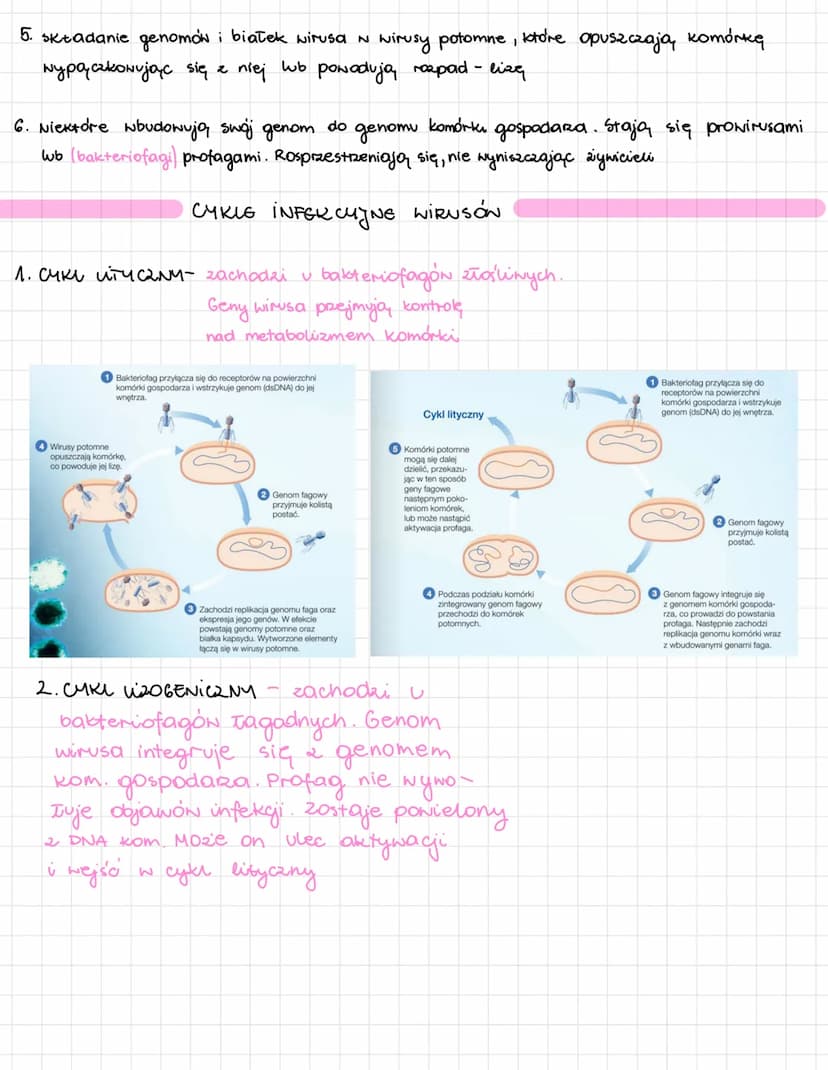 5. składanie genomów i białek wirusa w wirusy potomne, które opuszczają komórkę
wypączkowując się z niej lub powodują rozpad - lizę
6. Niektóre wbudowują swój genom do genomu komórki gospodarza. Stają się prowirusami
lub (bakteriofagi) profagami. Rosprzestrzeniają się, nie wyniszczając żywicieli
CYKLE INFEKCYJNE WIRUSÓW
1. CYKL LITYCZNY- zachodzi u bakteriofagów złośliwych.
Geny wirusa przejmują kontrolę
nad metabolizmem komórki
1 Bakteriofag przyłącza się do receptorów na powierzchni
komórki gospodarza i wstrzykuje genom (dsDNA) do jej
wnętrza.
4 Wirusy potomne
opuszczają komórkę,
co powoduje jej lizę.
2 Genom fagowy
przyjmuje kolistą
postać.
3 Zachodzi replikacja genomu faga oraz
ekspresja jego genów. W efekcie
powstają genomy potomne oraz
białka kapsydu. Wytworzone elementy
łączą się w wirusy potomne.
1 Bakteriofag przyłącza się do
receptorów na powierzchni
komórki gospodarza i wstrzykuje
genom (dsDNA) do jej wnętrza.
Cykl lityczny
5 Komórki potomne
mogą się dalej
dzielić, przekazu-
jąc w ten sposób
geny fagowe
następnym poko-
leniom komórek,
lub może nastąpić
aktywacja profaga.
2 Genom fagowy
przyjmuje kolistą
postać.
4 Podczas podziału komórki
zintegrowany genom fagowy
przechodzi do komórek
potomnych.
3 Genom fagowy integruje się
z genomem komórki gospoda-
rza, co prowadzi do powstania
profaga. Następnie zachodzi
replikacja genomu komórki wraz
z wbudowanymi genami faga.
2. CYKL LIZOGENICZNY - zachodzi u
bakteriofagów łagodnych. Genom
wirusa integruje się z genomem
kom. gospodarza. Profag nie wywo-
łuje objawów infekcji. Zostaje powielony
z DNA kom. Może on ulec aktywacji
i wejść w cykl lityczny